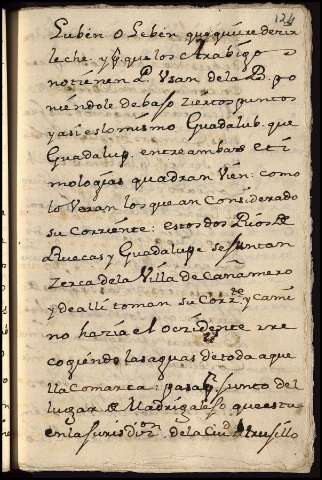 124
Lubèn O Lebèn que quiere deçir
leche. y q̃. que los Arabigos
notienen P. Usan de la B. po
niéndole debaxo ziertos puntos
y asi es lo mismo Guadalub. que
Guadalup. entre ambas eti
mologías quadran vién: como
lo Veran los que an Considerado
su Corriente: estos dos Ríos de
Ruecas y Guadalupe se Juntan
Zerca de la Villa de Cañamero
y de alli toman su Corr.te y Cami
no hazia el ocçidente rre
coqiéndo las aguas de toda aque
lla Comarca: pasa Junto del
lugar de Madrigalejo que esta
en la Jurisdiz.on de la Ciu.d trusillo